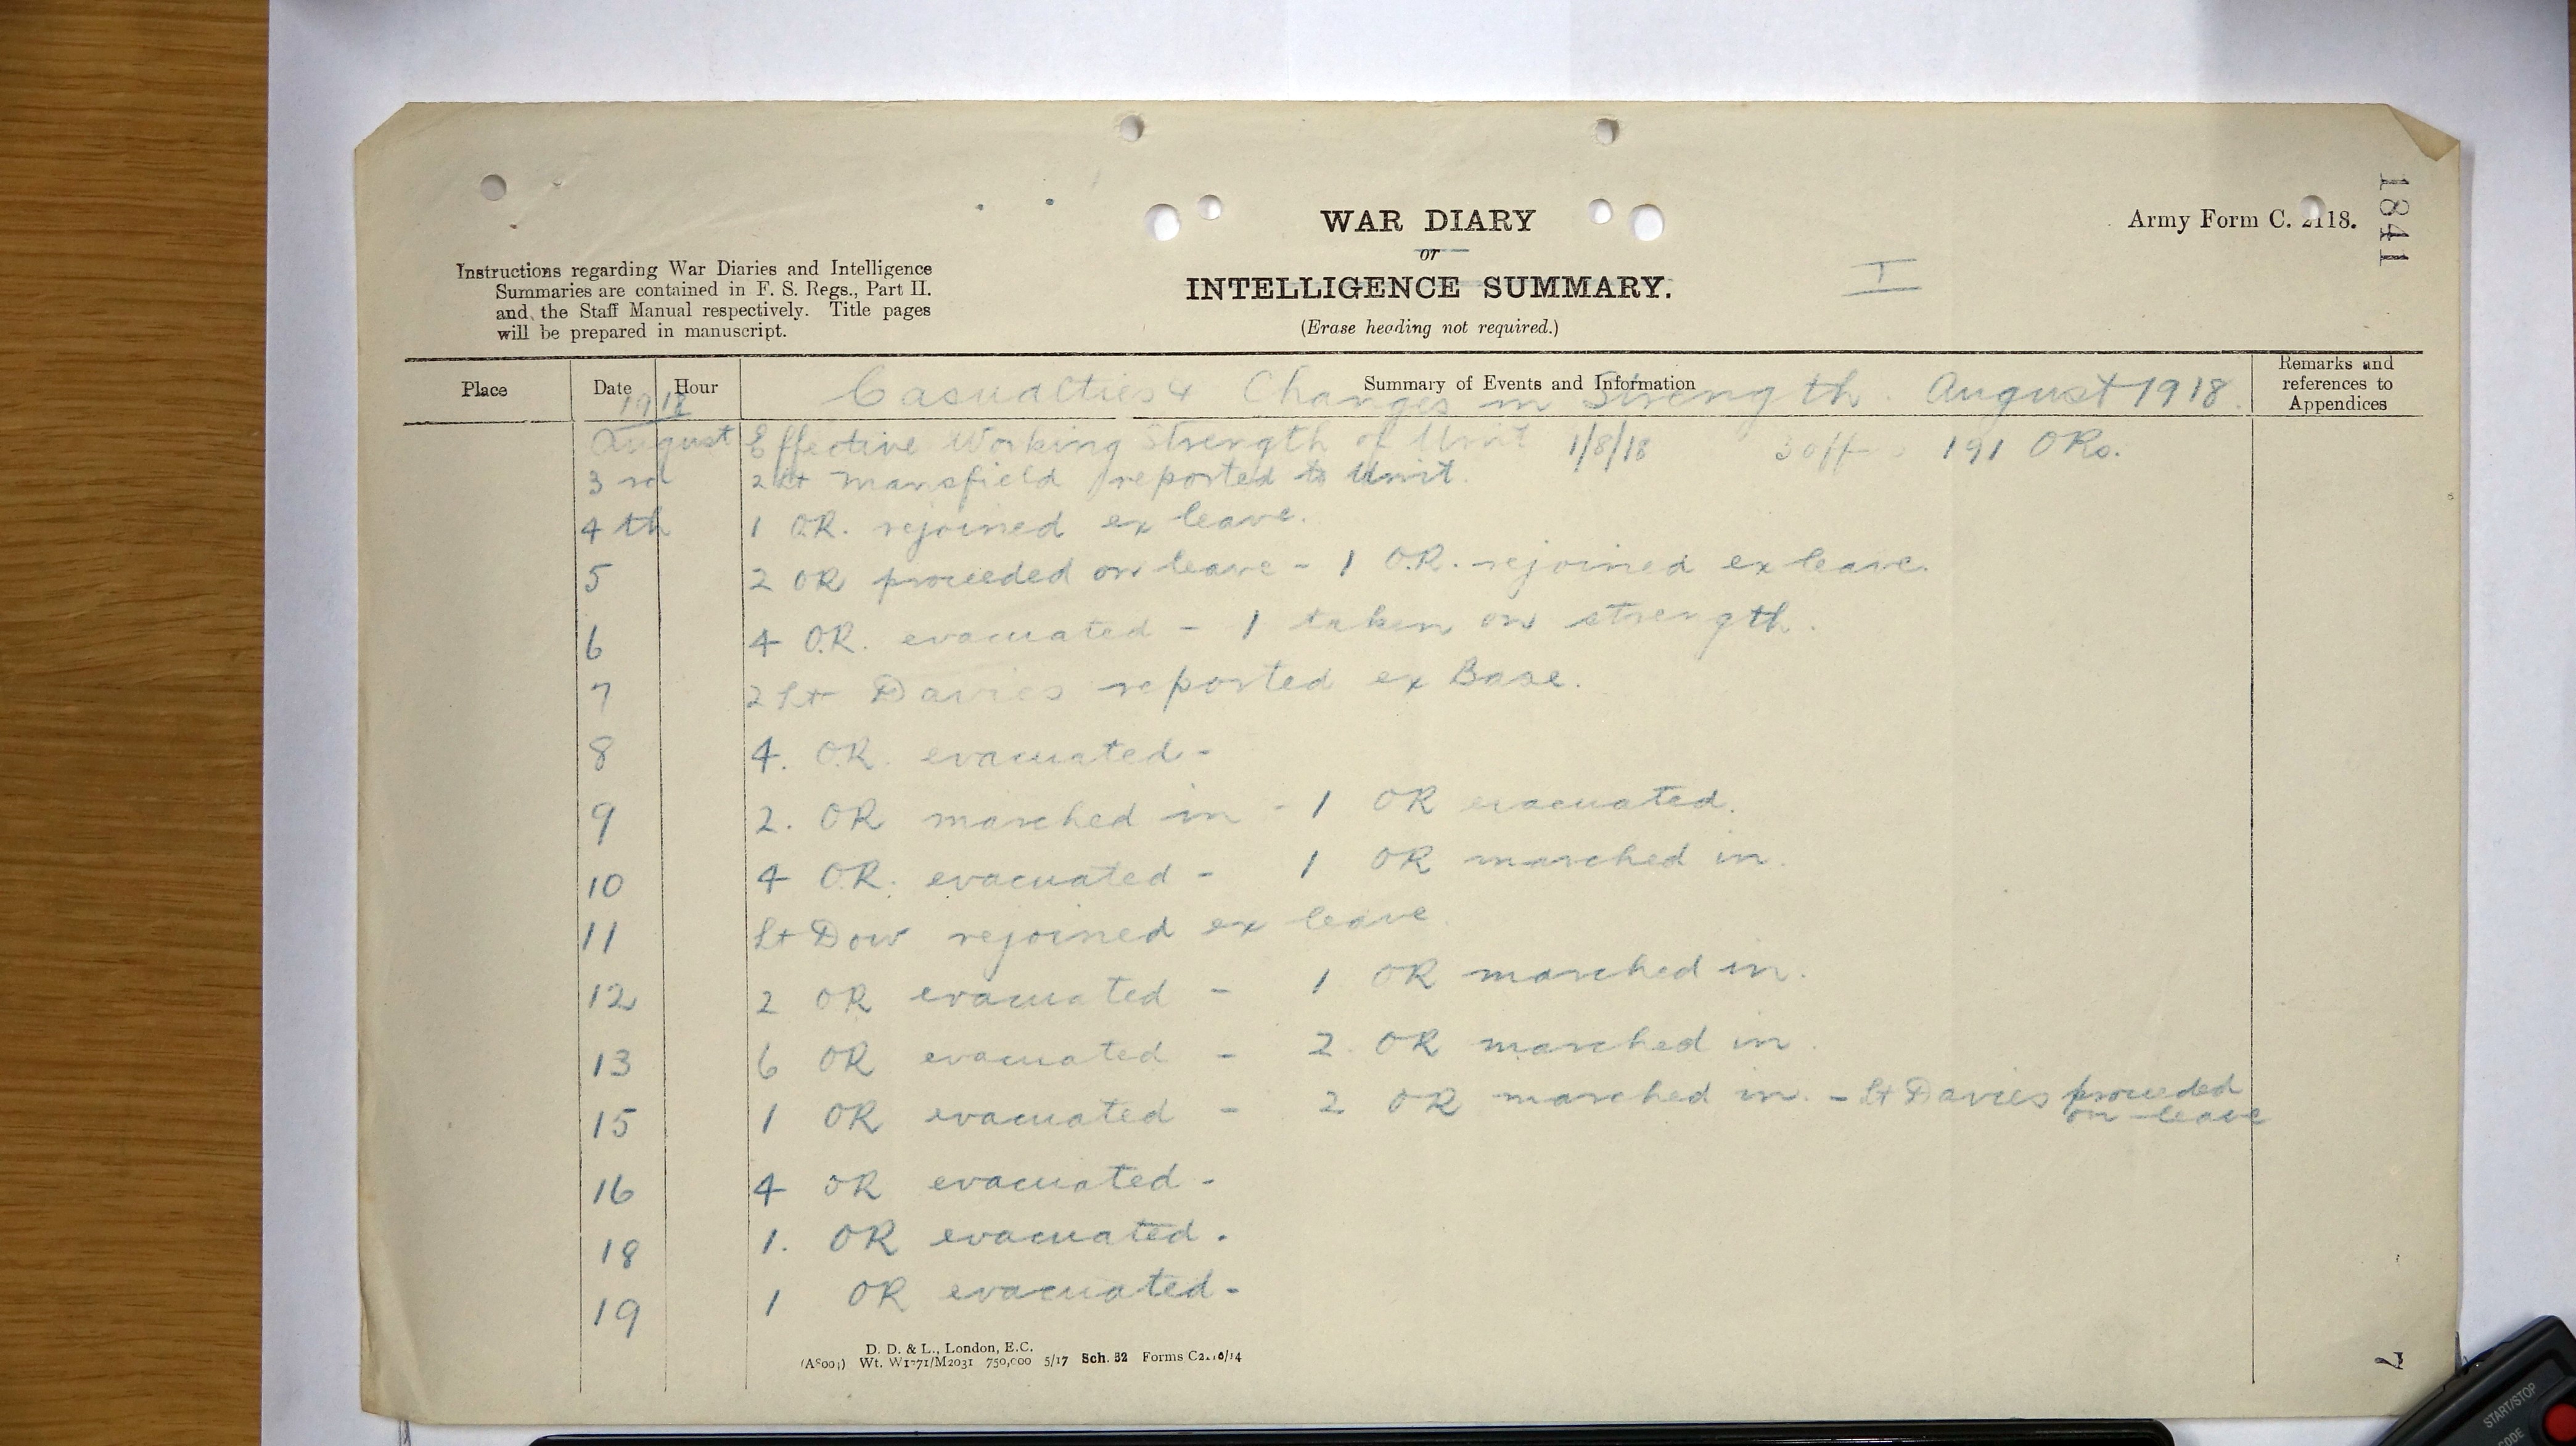 1841
WAR DIARY
or
INTELLIGENCE SUMMARY.
(Erase heading not required.)
Army Form C. 2118.
I
Instructions regarding War Diaries and Intelligence
Summaries are contained in F. S. Regs., Part II.
and the Staff Manual respectively. Title pages
will be prepared in manuscript.
Place Date Hour Summary of Events and Information Remarks and references to Appendices
1918 Casualties & Changes in Strength. August 1918.
August Effective Working Strength of Unit 1/8/18 3 off 191 ORs.
3rd 2 Lt Mansfield reported to Unit.
4th 1 O.R. rejoined ex leave.
5 2 OR proceeded on leave - 1 O.R. rejoined ex leave.
6 4 O.R. evacuated - 1 taken on strength.
7 2 Lt Davies reported ex Base.
8 4. O.R. evacuated -
9 2. OR marched in - 1 OR evacuated.
10 4 O.R. evacuated - 1 OR marched in.
11 Lt Dow rejoined ex leave
12 2 OR evacuated - 1 OR marched in.
13 6 OR evacuated - 2. OR marched in.
15 1 OR evacuated - 2 OR marched in. - Lt Davies proceeded
on leave
16 4 OR evacuated -
18 1. OR evacuated.
19 1 OR evacuated -
D. D. & L., London, E.C.
Wt. W1771/M2031 750,000 5/17 Sch. 52 Forms
7
START/STOP